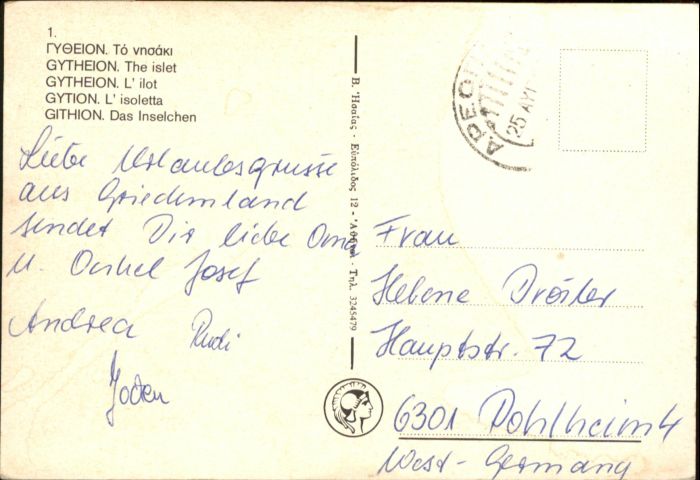 1.
ΓΥΘΕΙΟΝ. Τό νησάκι
GYTHEION. The islet
GYTHEION. L' ilot
GYTION. L' isoletta
GITHION. Das Inselchen
Liebe Urlaubsgrüsse
aus Griechenland
sendet Dir liebe Oma
u. Onkel Josef
Andrea Rudi
Β. Ἡσαΐας · Εὐπόλιδος 12 - Ἀθῆναι · Τηλ. 3245479
25 ΑΠΡ
Frau
Helene
Hauptstr. 72
6301 Pohlheim 4
West-Germany